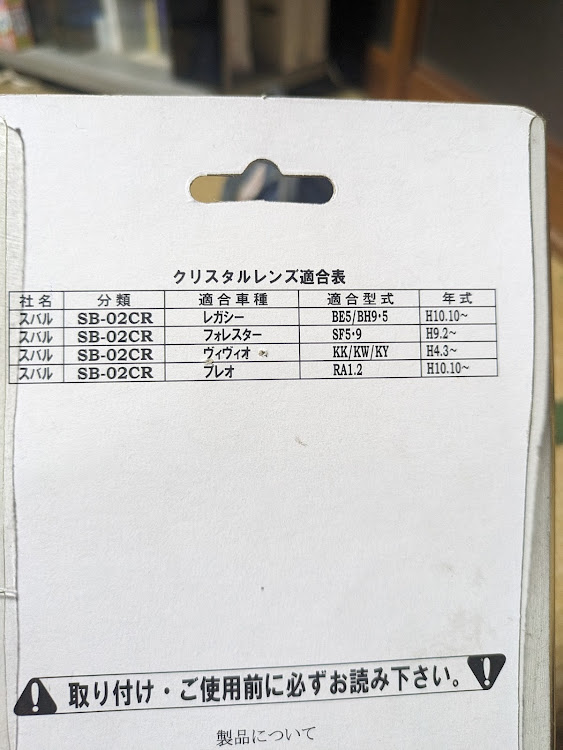 クリスタルレンズ適合表
社名 分類 適合車種 適合型式 年式
スバル SB-02CR レガシー BE5/BH9・5 H10.10~
スバル SB-02CR フォレスター SF5・9 H9.2~
スバル SB-02CR ヴィヴィオ KK/KW/KY H4.3~
スバル SB-02CR プレオ RA1.2 H10.10~
取り付け・ご使用前に必ずお読み下さい。
製品について